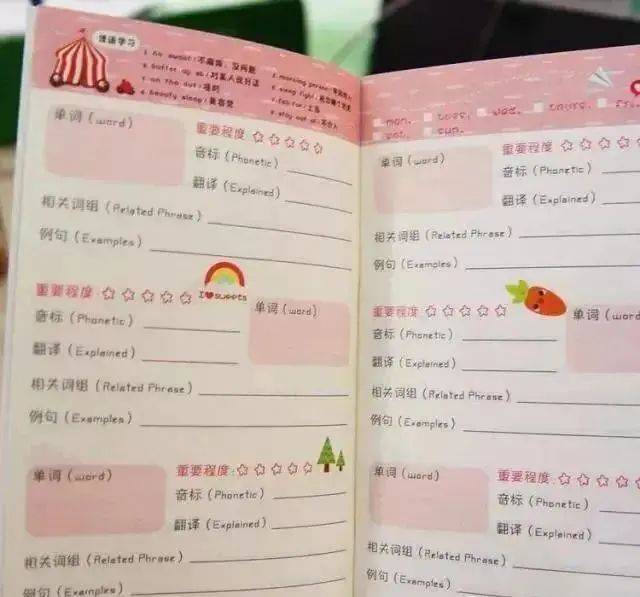 俚语学习
1. no sweat: 不麻烦, 没问题
2. butter up sb: 对某人说好话
3. on the out:
4. beauty sleep: 美容觉
5. morning person:
6. sleep tight:
7.
8. stay out of: 不介入
单词 (word)
重要程度
音标 (Phonetic)
翻译 (Explained)
相关词组 (Related Phrase)
例句 (Examples)
重要程度
I ♥ sweets
单词 (word)
音标 (Phonetic)
翻译 (Explained)
相关词组 (Related Phrase)
例句 (Examples)
单词 (word)
重要程度:
音标 (Phonetic)
翻译 (Explained)
相关词组 (Related Phrase)
例句 (Examples)
mon. tues. wed. thurs. fri
sat. sun.
单词 (word)
重要程度
音标 (Phonetic)
翻译 (Explained)
相关词组 (Related Phrase)
例句 (Examples)
重要程度
单词 (word
音标 (Phonetic)
翻译 (Explained)
相关词组 (Related Phrase)
例句 (Examples)
单词 (word)
重要程度:
音标 (Phonetic)
翻译 (Explained)
相关词组 (Related Phrase)
例句 (Examples)